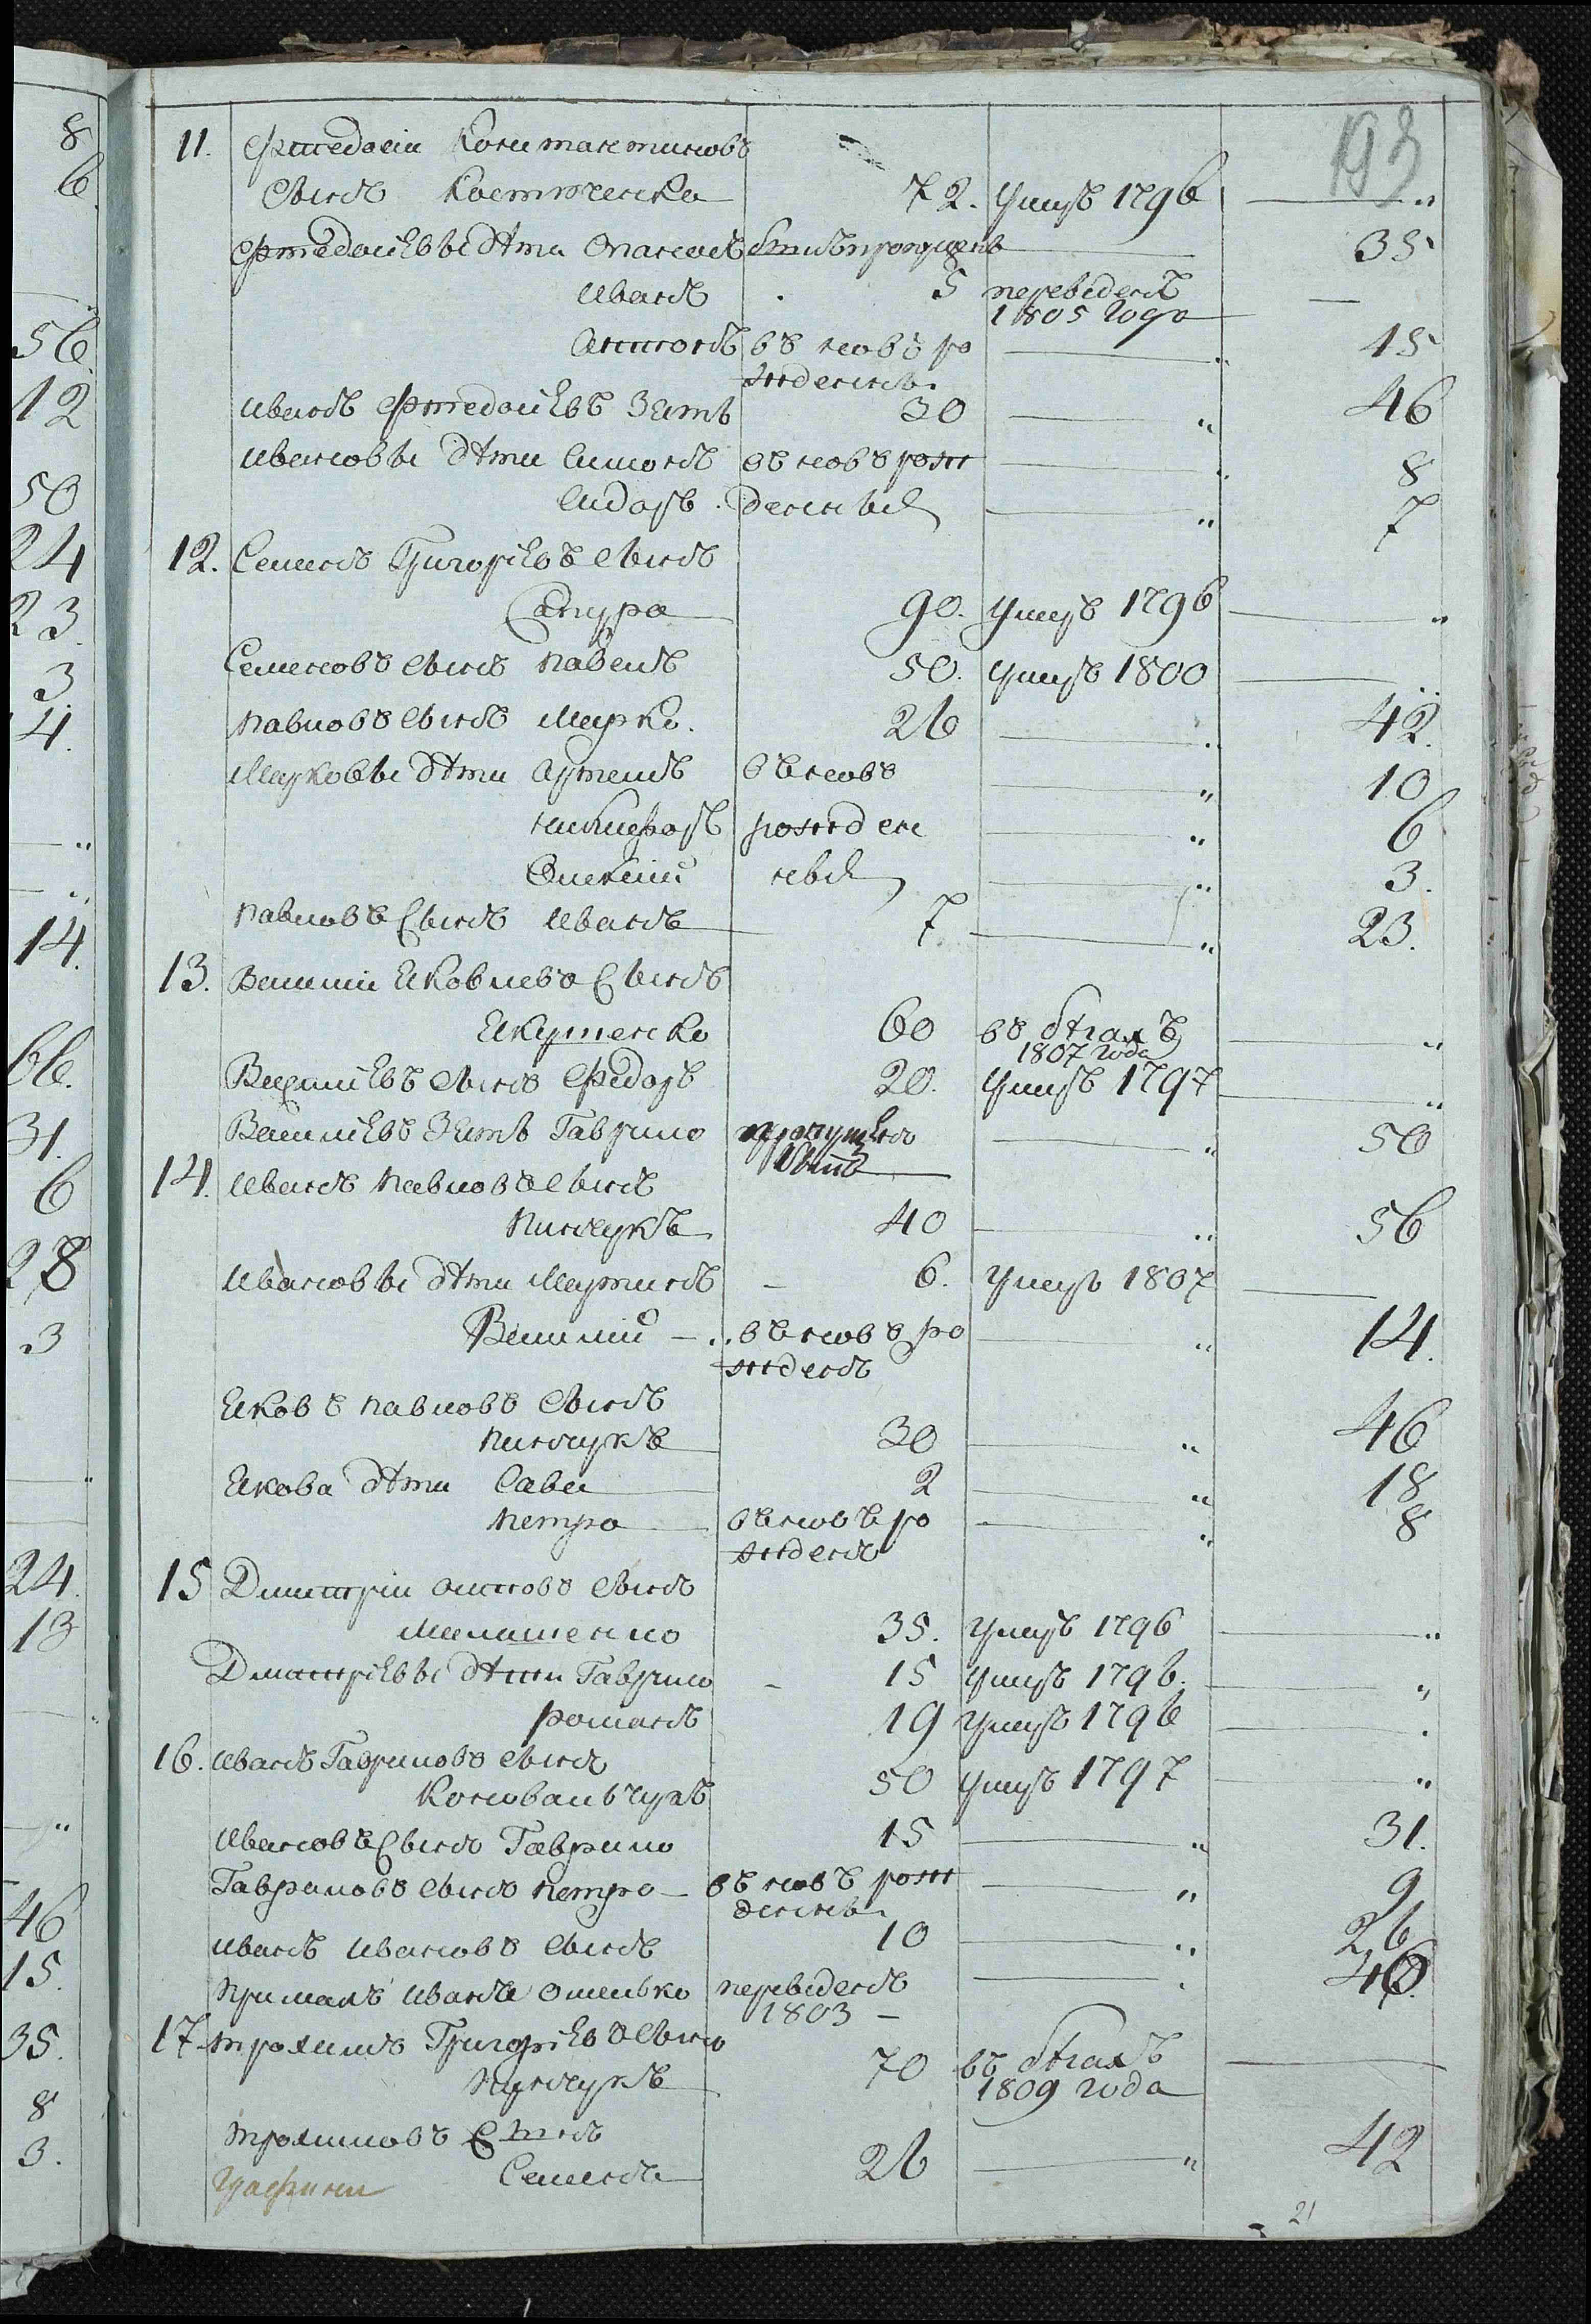 193
11. Фтедосiи Константиновъ
сынъ Костюченко 72. умеръ 1796 — „
Фтедосiевы дѣти Опанасъ былъ пропущенъ — 35
Иванъ . 5 переведенъ —
1805 года
Антонъ въ новѣ ро — „ 15
жденны
Иванъ Фтедосiевъ зять 30 — „ 46
Ивановы дѣти Симонъ въ новѣ рож — „ 8
Сидоръ . денные — „ 7
12. Семенъ Григорiевъ сынъ
Сапура 90. умеръ 1796 — „
Семеновъ сынъ Павелъ 50. умеръ 1800 — „
Павловъ сынъ Марко. 26 — „ 42.
Марковы дѣти Артемъ въ новѣ — „ 10
Никифоръ рожден — „ 6
Олексiй ные — „ 3.
Павловъ сынъ Иванъ 7 — „ 23.
13. Василiи Яковлевъ сынъ
Якушенко 60 въ бѣгахъ — „
1807 года
Василiевъ сынъ Федоръ 20. умеръ 1797 — „
Василiевъ зять Гаврило пропущенъ — „ 50
былъ
14. Иванъ Павловъ сынъ
Пинчукъ 40 — „ 56
Ивановы дѣти Мартинъ — 6. умеръ 1807 —
Василiй — въ новѣ ро — „ 14.
жденъ
Яковъ Павловъ сынъ
Пинчукъ 30 — „ 46
Якова дѣти Сава 2 — „ 18
Петро въ новѣ ро — „ 8
жденъ
15 Дмитрiи Осиповъ сынъ
35. умеръ 1796 — „
Дмитрiевы дѣти Гаврило — 15 умеръ 1796. — „
Романъ 19 умеръ 1796 — .
16. Иванъ Гавриловъ сынъ
Коновальчукъ 50 умеръ 1797 — „
Ивановъ сынъ Гаврило 15 — „ 31.
Гавриловъ сынъ Петро — въ новѣ рож — „ 9
денны
Иванъ Ивановъ сынъ 10 — „ 26
Примакъ Иванъ Омелько переведенъ — . 40.
1803 —
17. Трохимъ Григорiевъ сынъ
Пинчукъ 70 въ бѣгахъ —
1809 года
Трохимовъ сынъ
Семенъ 26 — „ 42
Графини
21
8
6.
56.
12
50
24
23.
3.
14.
14.
66.
31.
6
28
3
24.
13
46
15.
35.
8
3.